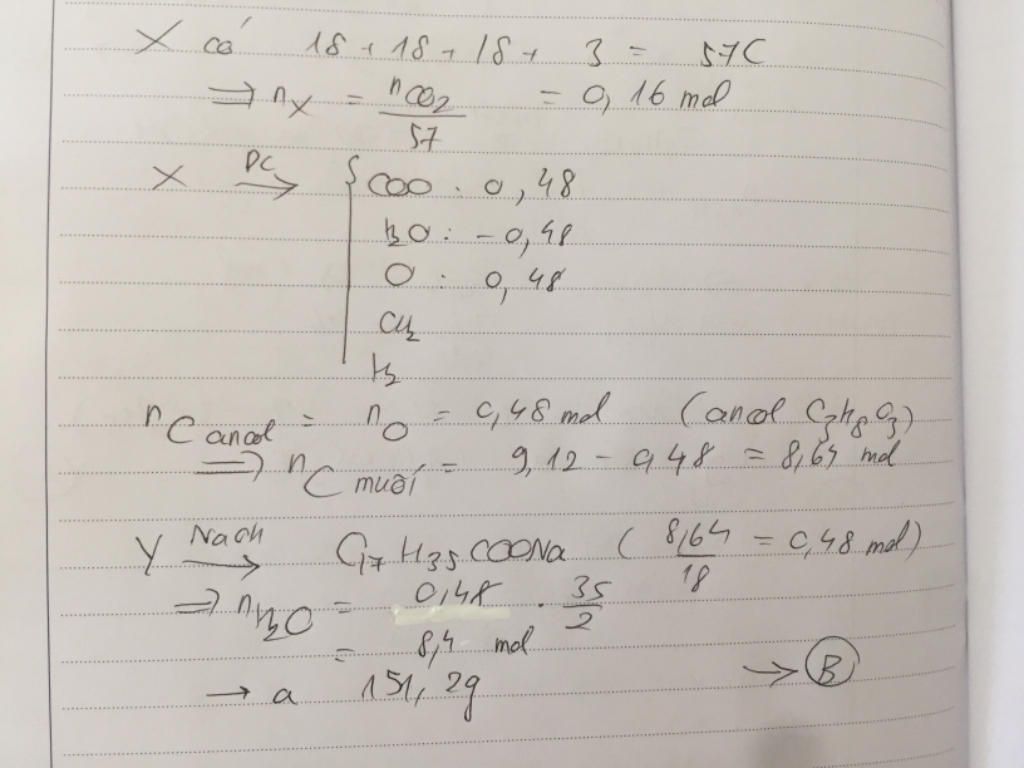 X có 18 + 18 + 18 + 3 = 57C
⇒ nX = nCO2 / 57 = 0,16 mol
X ĐC→ { COO : 0,48
H2O : - 0,48
O : 0,48
CH2
H2
nC ancol = nO = 0,48 mol (ancol C3H8O3)
⇒ nC muối = 9,12 - 0,48 = 8,64 mol
Y NaOH→ C17H35COONa ( 8,64 / 18 = 0,48 mol)
⇒ nH2O = 0,48 . 35 / 2
= 8,4 mol
→ a 151,2g → B